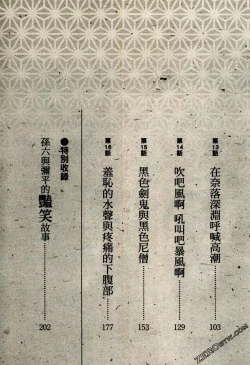 第13話 在奈落深淵呼喊高潮 103
第14話 吹吧風啊 吼叫吧暴風啊 129
第15話 黑色劍鬼與黑色尼僧 153
第16話 羞恥的水聲與疼痛的下腹部 177
●特別收錄
孫六與彌平的豔笑故事 202